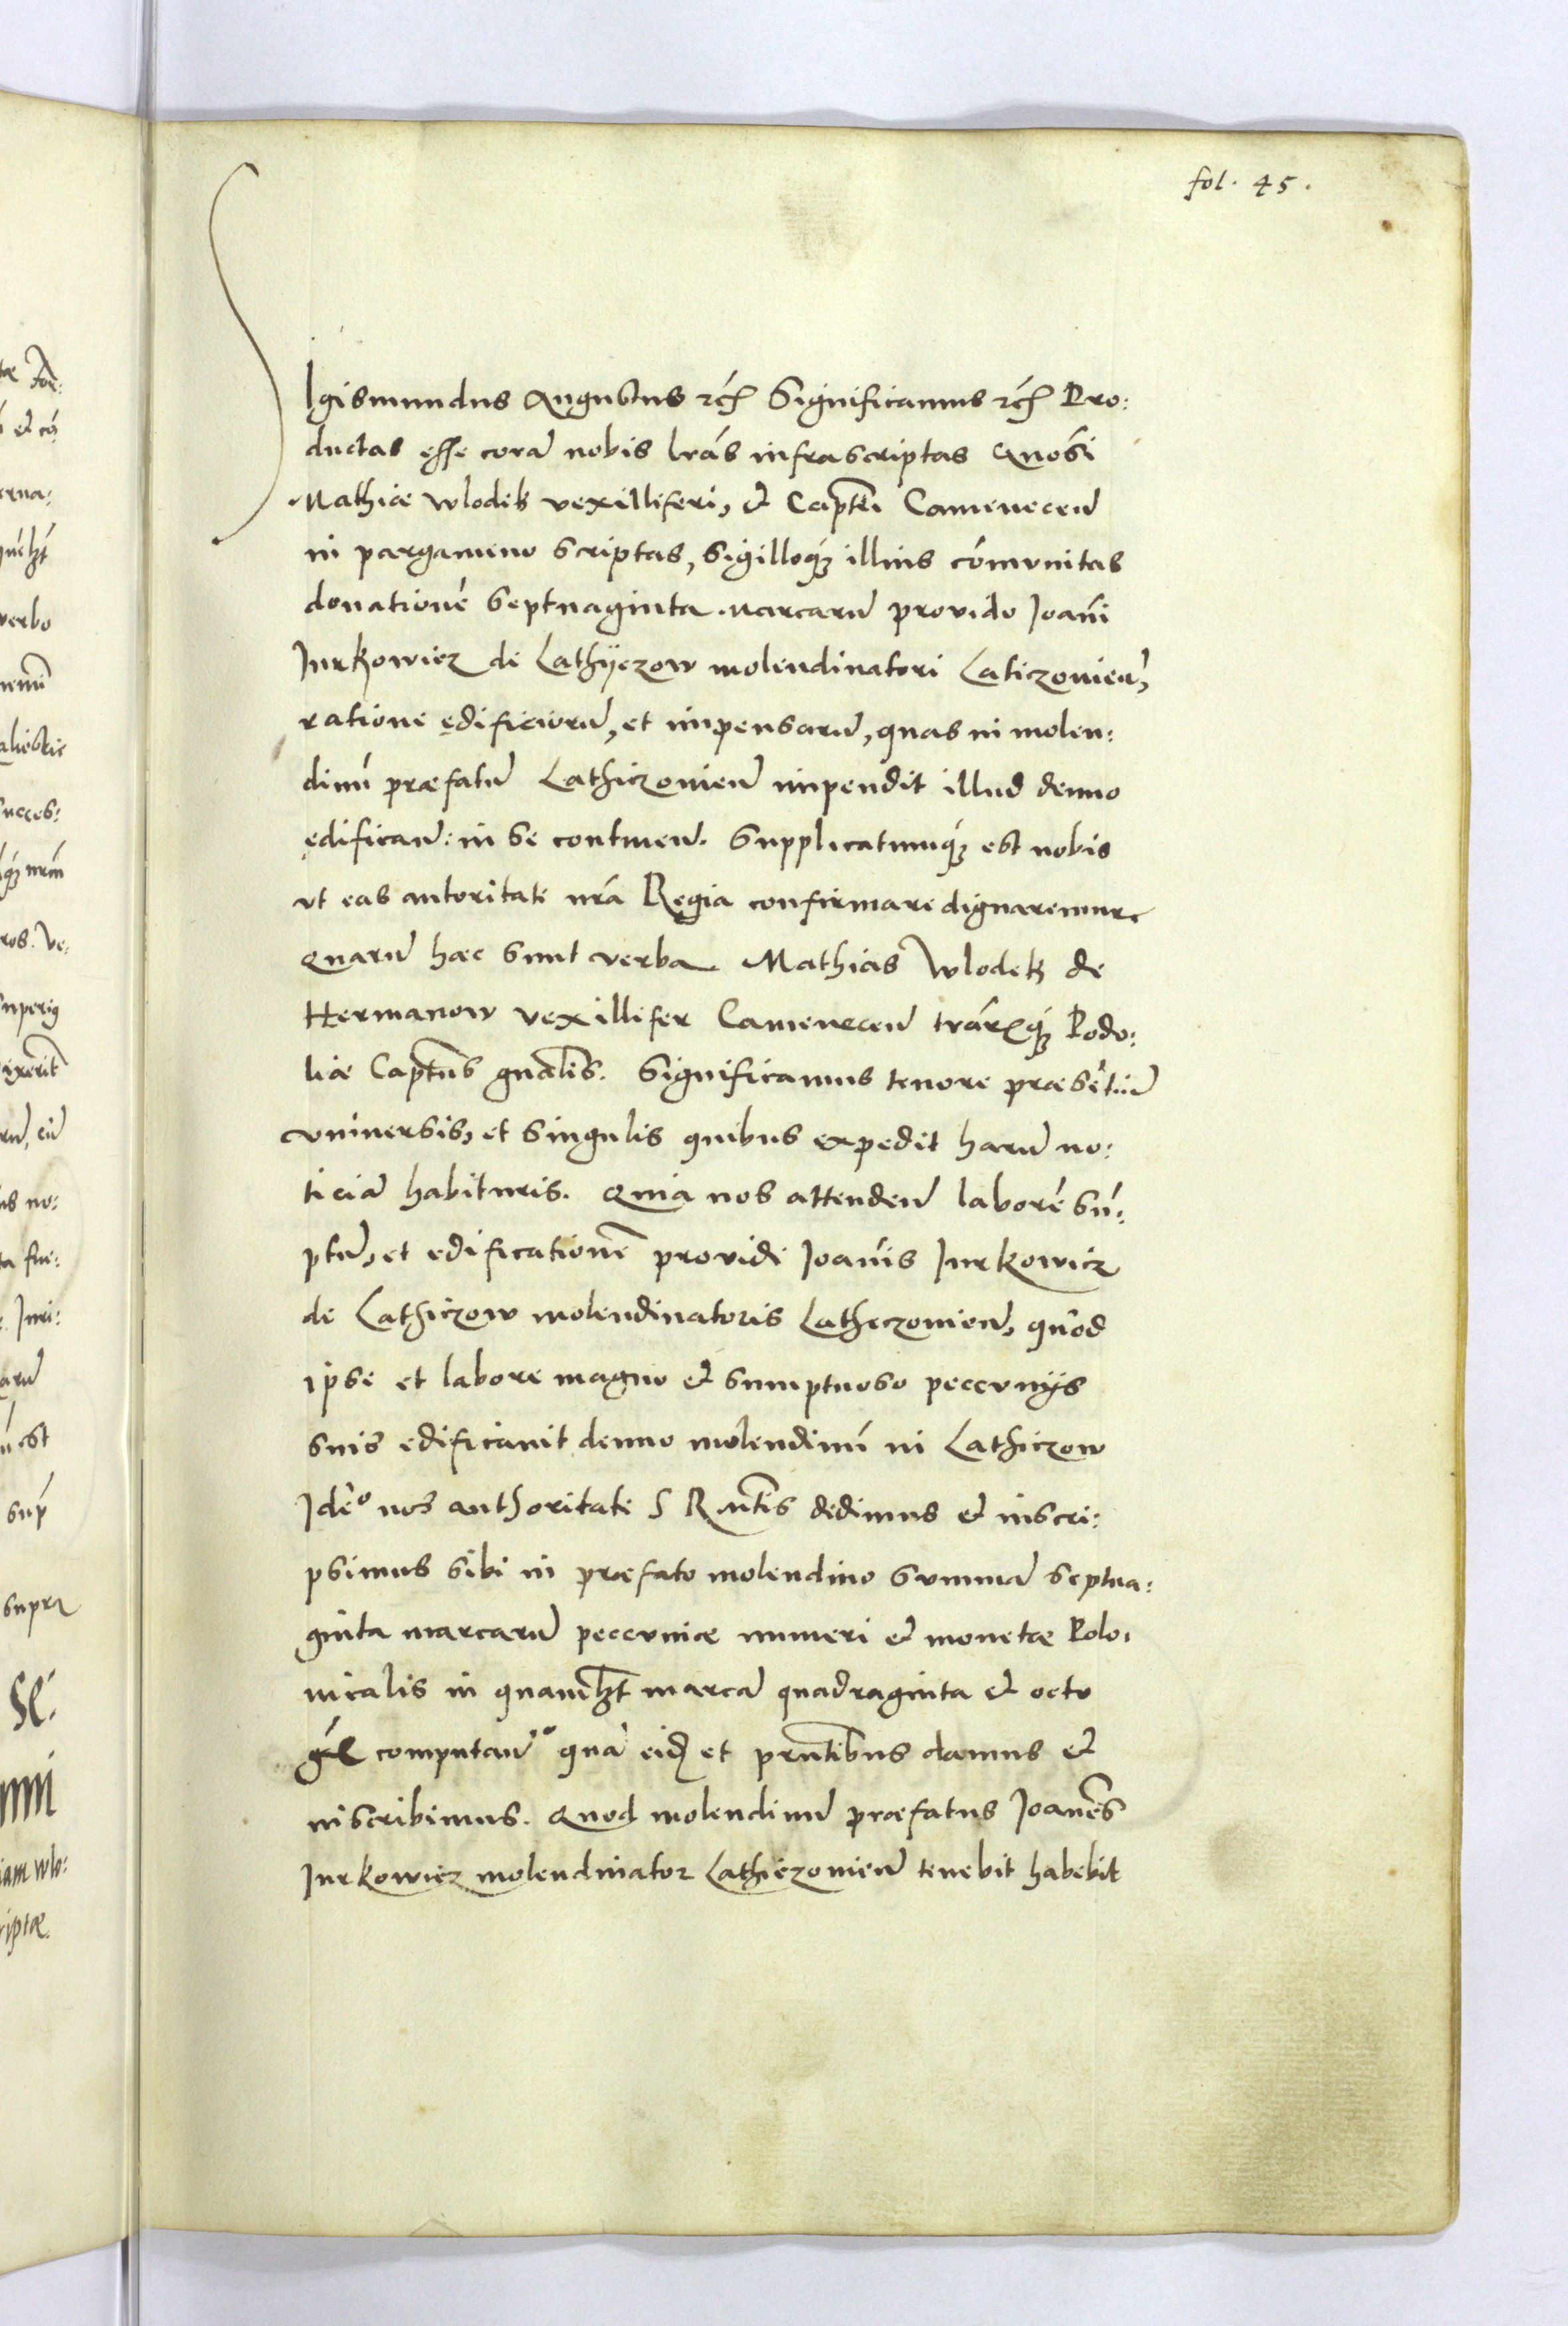 fol. 45.
SIgismundus Augustus etc̃ Significamus etc̃ Pro:
ductas esse corã nobis lrãs infrascriptas Gnosi
Mathiæ wlodek vexilliferi, et Captei Camenecen̄
in pargameno scriptas, sigilloq́ꝫ illius cõmunitas
donationẽ septuaginta marcarũ provido Joãni
Jurkowicz de Lathyczow molendinatori Laticzovien̄,
ratione ędificiorũ, et impensarũ, quas in molen:
dinũ præfatũ Lathiczovien̄ impendit illud denuo
ędifican̄: in se continen̄. Supplicatumq́ꝫ est nobis
vt eas autoritate nrã Regia confirmare dignaremur
quarũ hæc sunt verba Mathias Wlodek de
Hermanow vexillifer Camenecen̄ trãrq́ꝫ Podo:
liæ Captñs gnãlis. Significamus tenore præsẽtiũ
vniuersis, et singulis quibus expedit harũ no:
ticiã habituris. Quia nos attenden̄ laborẽ sũ:
ptũ, et edificationẽ providi Joãnis Jurkowicz
de Lathiczow molendinatoris Latheczovien̄, quod
ipse et labore magno et sumptuoso peccuniįs
suis edificauit denuo molendinũ in Lathiczow
Jdeo nos authoritate S R Mtis dedimus et inscri:
psimus sibi in præfato molendino summã septua:
ginta marcarũ peccuniæ numeri et monetæ Polo:
nicalis in quamlꝫt marcã quadraginta et octo
computan̄do quã eid et prñtibus damus et
inscribimus. Quod molendinũ præfatus Joañes
Jurkowicz molendinator Lathiczovien̄ tenebit habebit